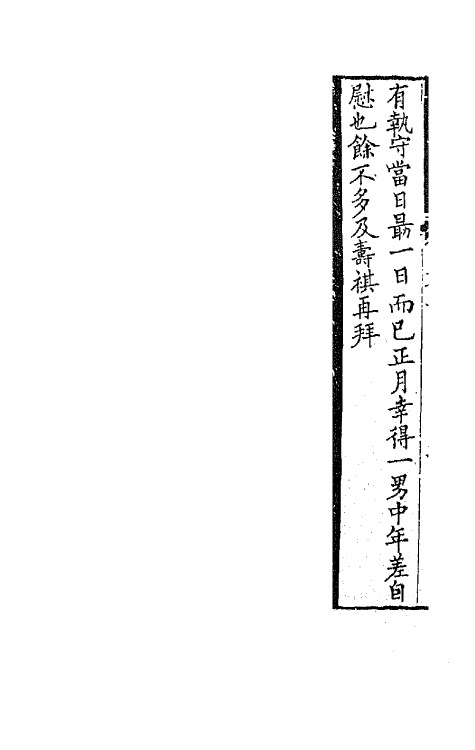 有執守當日最一日而已正月幸得一男中年差自
慰也餘不多及壽祺再拜